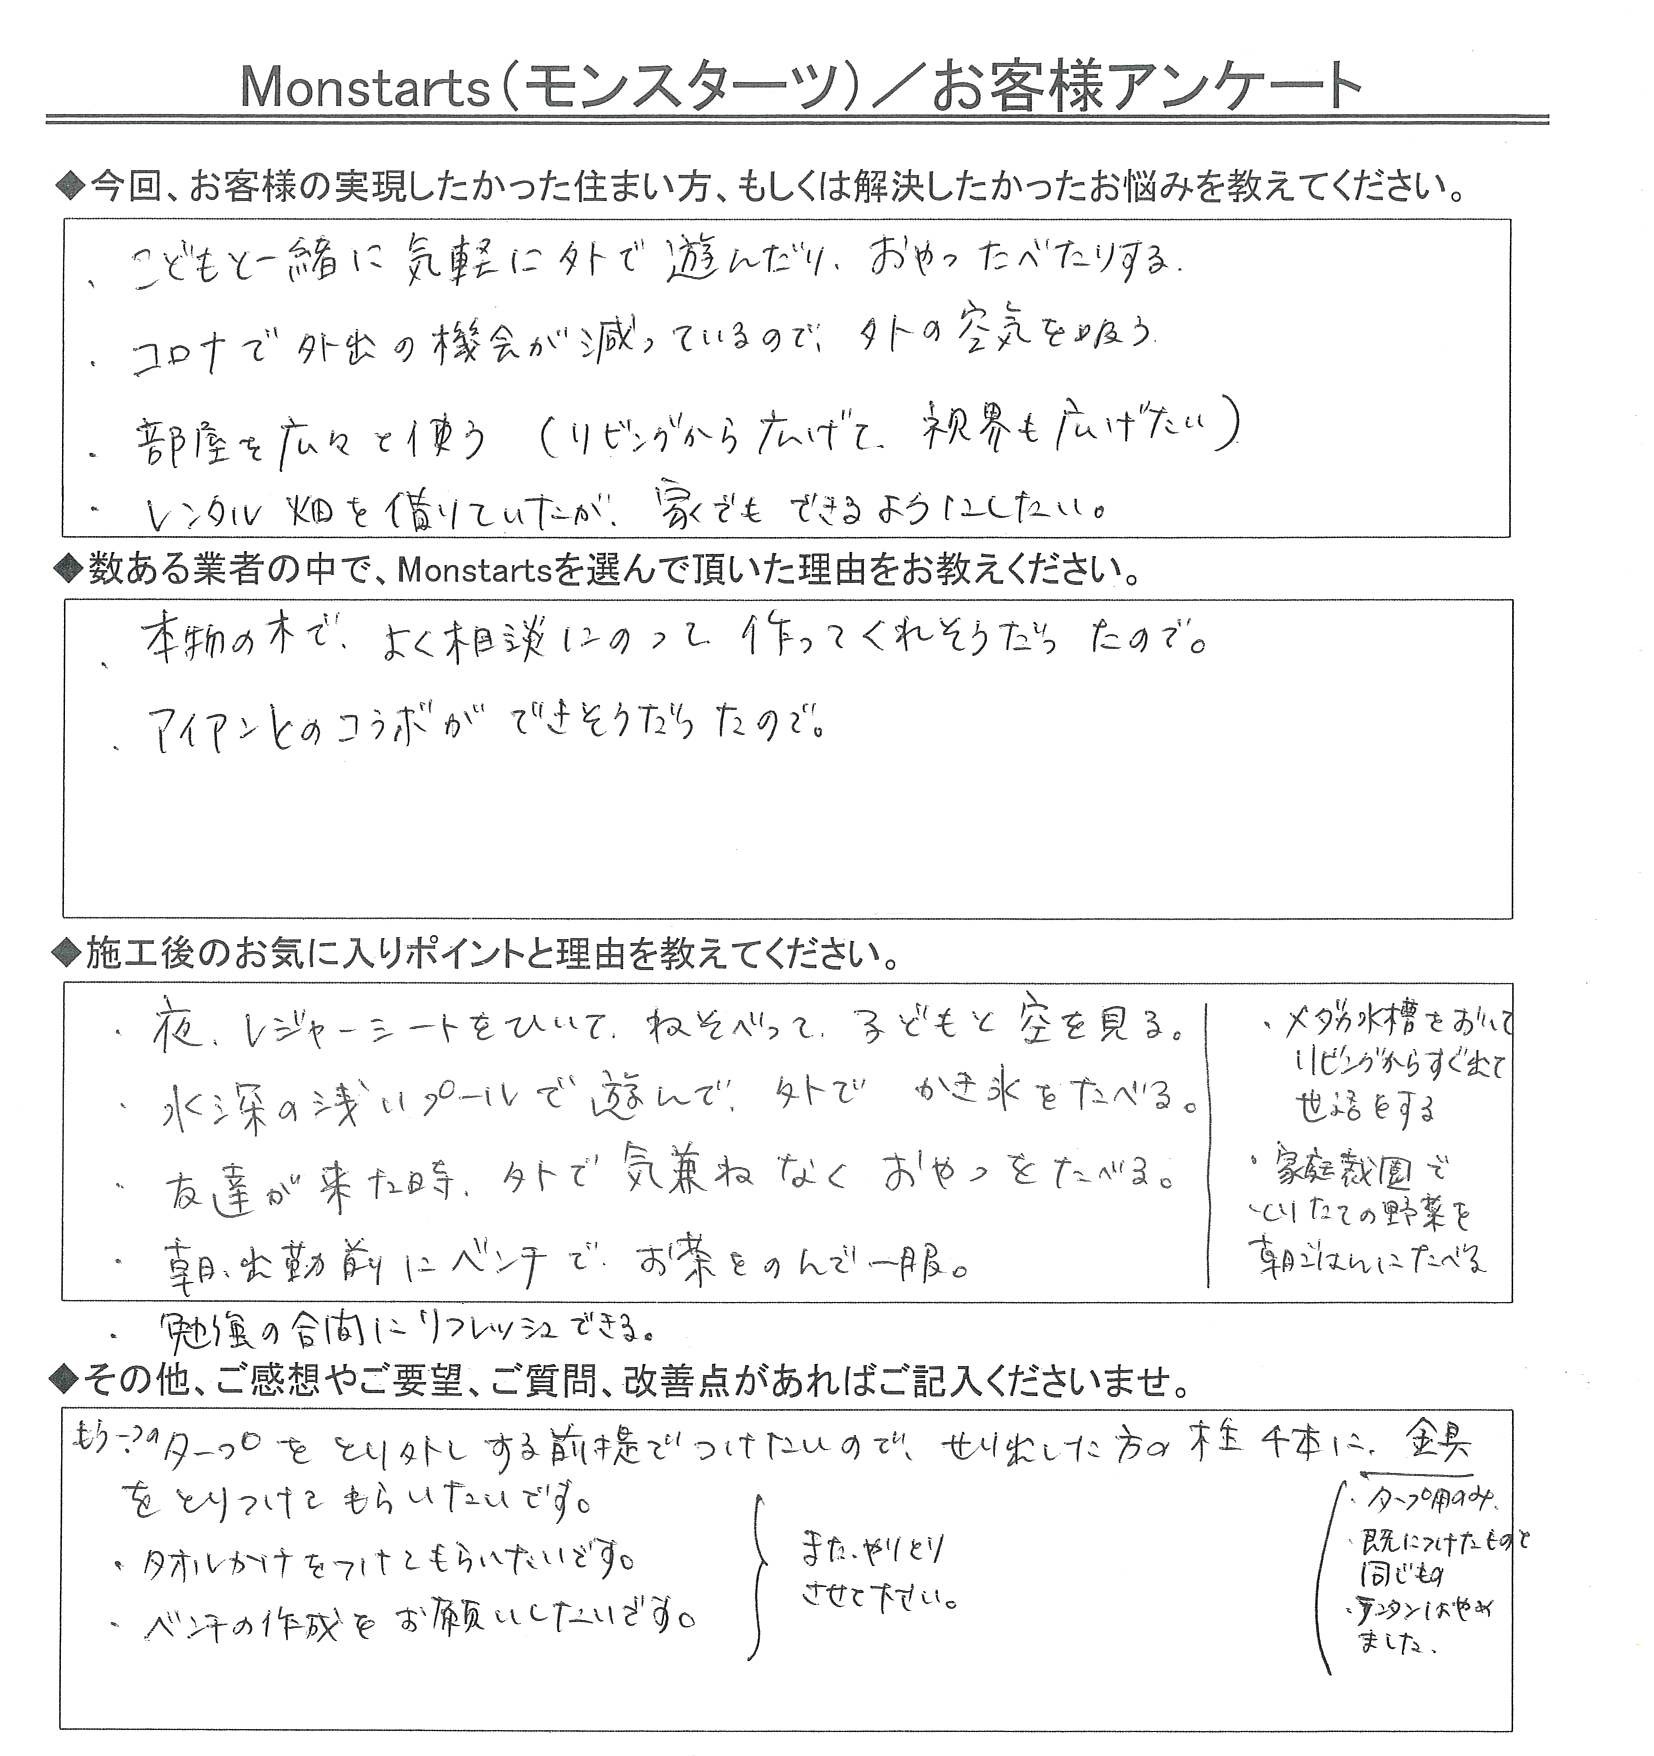 Monstarts（モンスターツ）／お客様アンケート
◆今回、お客様の実現したかった住まい方、もしくは解決したかったお悩みを教えてください。
・こどもと一緒に気軽に外で遊んだり、おやつたべたりする。
・コロナで外出の機会が減っているので、外の空気を吸う
・部屋を広々と使う（リビングから広げて、視界も広げたい）
・レンタル畑を借りていたが、家でもできるようにしたい。
◆数ある業者の中で、Monstartsを選んで頂いた理由をお教えください。
・本物の木で、よく相談にのって作ってくれそうだったので。
・アイアンとのコラボができそうだったので。
◆施工後のお気に入りポイントと理由を教えてください。
・夜、レジャーシートをひいて、ねそべって、子どもと空を見る。
・水深の浅いプールで遊んで、外でかき氷をたべる。
・友達が来た時、外で気兼ねなくおやつをたべる。
・朝、出勤前にベンチで、お茶をのんで一服。
・勉強の合間にリフレッシュできる。
・メダカ水槽をおいて
リビングからすぐ出て
世話をする
・家庭栽園で
とりたての野菜を
朝ごはんにたべる
◆その他、ご感想やご要望、ご質問、改善点があればご記入くださいませ。
もう一つのタープをとり外しする前提でつけたいので、せり出した方の柱 千本に、金具
をとりつけてもらいたいです。
・タオルかけをつけてもらいたいです。
・ベンチの作成をお願いしたいです。
また、やりとり
させて下さい。
・タープ用のみ、
・既につけたものと
同じもの
・ランタンはやめ
ました。